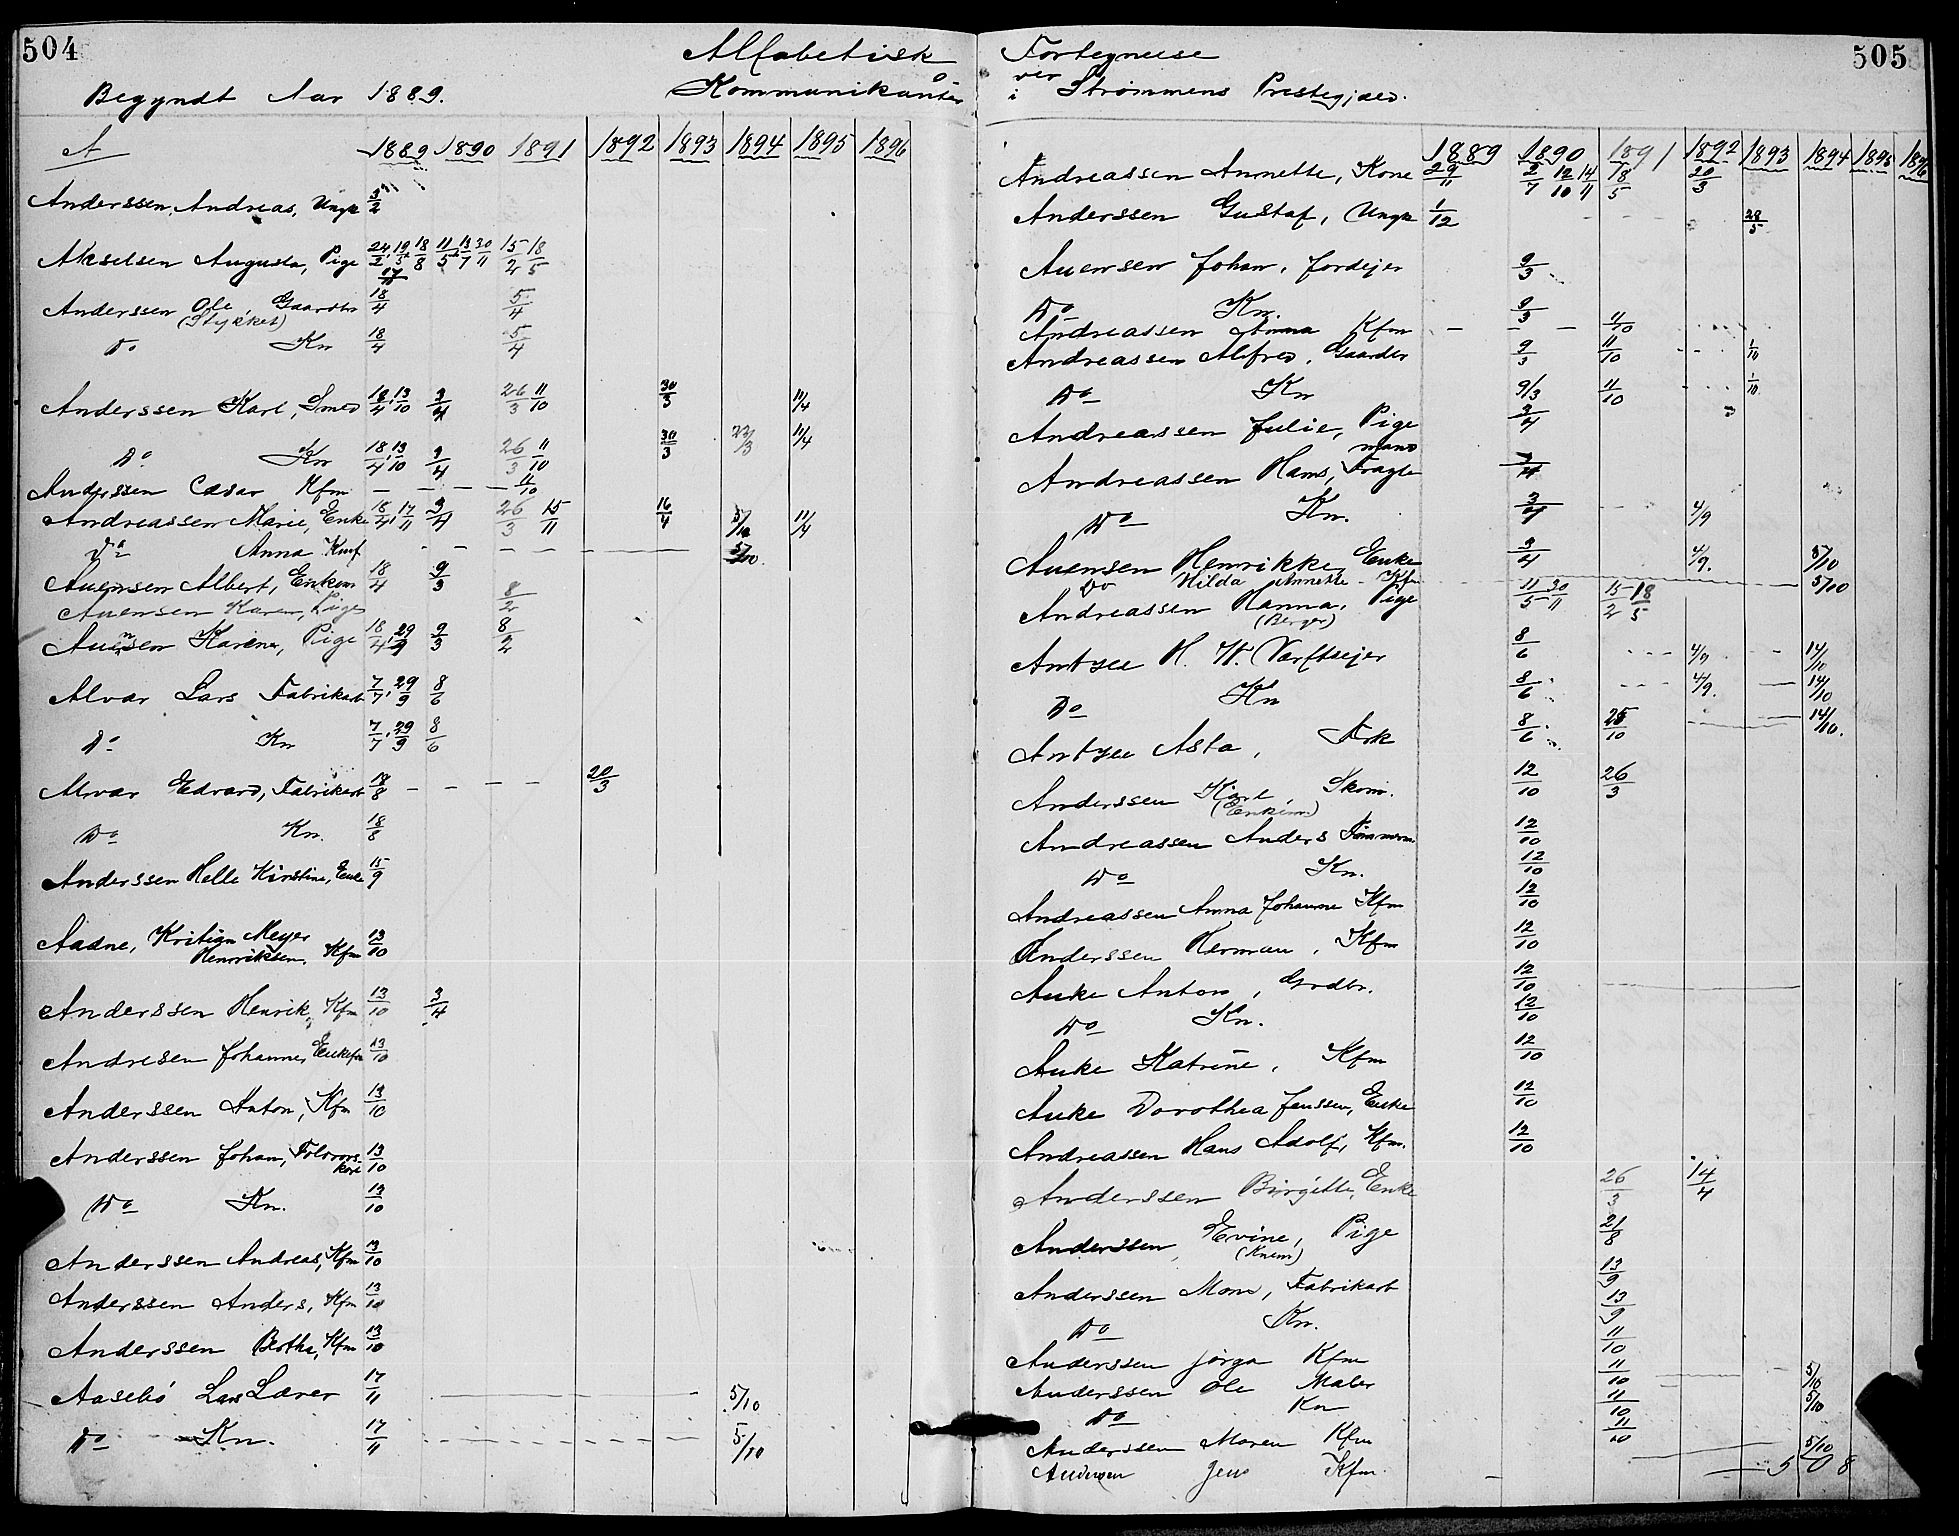 504
Alfabetisk
Begyndt Aar 1889.
Kommunikanter
A 1889 1890 1891 1892 1893 1894 1895 1896
Anderssen, Andreas, Ungk 3/2
Akselsen Augusta, Pige 24/2 19/5 18/8 11/5 13/7 30/11 15/2 18/5
17/11
Anderssen Ole, Gaardbr 18/4 5/4
(Stykket)
Do Kn 18/4 5/4
Anderssen Karl, Smed 18/4 13/10 3/4 26/3 11/10 30/3 11/4
Do Kn 18/4 13/10 3/4 26/3 11/10 30/3 11/4
Anderssen Cæsar Kfm 11/10
Andreassen Marie, Enke 18/4 17/11 3/4 26/3 15/11 16/4 5/10 11/4
Do Anna Konf 5/10.
Auensen Albert, Enkem 18/4 9/3
Auensen Karen, Pige 8/2
Auensen Karine, Pige 18/4 29/9 9/3 8/2
Alvar Lars Fabrikarb 7/7 29/9 8/6
Do Kn 7/7 29/9 8/6
Alvar Edvard, Fabrikarb 18/8 20/3
Do Kn. 18/8
Anderssen Helle Kirstine, Enke 15/9
Aadne, Kristian Meyer
Henriksen, Kfm 13/10
Anderssen Henrik, Kfm 13/10 3/4
Andresen Johanne, Enkefm 13/10
Anderssen Anton, Kfm 13/10
Anderssen Johan, 13/10
Do Kn. 13/10
Anderssen Andreas, Kfm 13/10
Anderssen Anders, Kfm 13/10
Anderssen Berthe, Kfm 13/10
Aasebö Lars Lærer 17/11 5/10
Do Kn. 17/11 5/10
505
Fortegnelse
over
i Strømmens Prestegjæld.
1889 1890 1891 1892 1893 1894 1895 1896
Andreassen Annette, Kone 29/11 2/7 12/10 14/11 18/5 20/3
Anderssen Gustaf, Ungk 1/12 28/5
Auensen Johan, Jordejer 9/3
Do Kn. 9/3
Andreassen Anna Kfm 11/10
Andreassen Alfred, Gaardbr 9/3 11/10 1/10
Do Kn 9/3 11/10 1/10
Andreassen Julie, Pige 3/4
mand
Andreassen Hans, Fragte 3/4
Do Kn. 3/4 4/9
Auensen Henrikke, Enke 3/4 4/9. 5/10
Do Hilda Annette Kfm 5/10
Andreassen Hanna, Pige 11/5 30/11 15/2 18/5
(Berger)
Antzee H. W. Værftsejer 8/6 4/9 14/10
Do Kn 8/6 4/9. 14/10
Antzee Asta, Frk 8/6 25/10 14/10.
Anderssen Karl Skom. 12/10 26/3
(Enkem)
Andreassen Anders Tømmerm. 12/10
Do Kn. 12/10
Andreassen Anna Johanne Kfm 12/10
Anderssen Herman, Kfm 12/10
Auke Anton, Grdbr. 12/10
Do Kn. 12/10
Auke Katrine, Kfm 12/10
Auke Dorothea Jenssen, Enke 12/10
Andreassen Hans Adolf, Kfm. 12/10
Anderssen Birgitte, Enke 26/3 14/4
Anderssen Evine, Pige 21/8
Anderssen Mons, Fabrikarb 13/9
Do Kn. 13/9
Anderssen Jörga Kfm 11/10
Anderssen Ole Maler 11/10 5/10
Do Kn 11/10 5/10
Anderssen Maren Kfm 11/10
Andersen Jens Kfm. 5/10
508